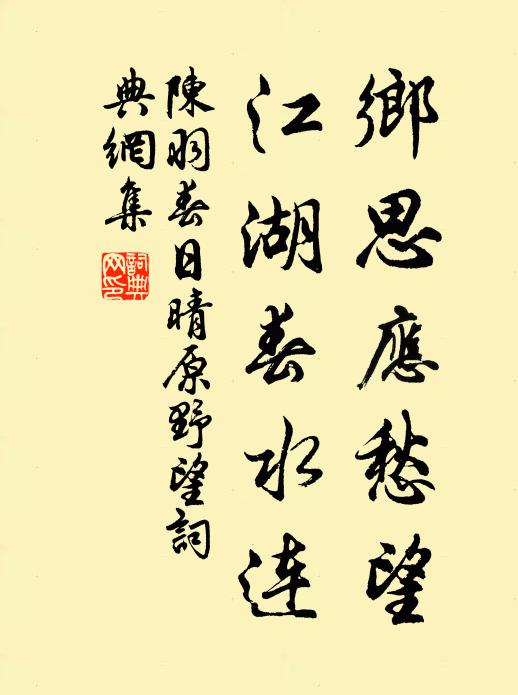 鄉思應愁望
江湖春水連
陳羽春日晴原野望詞
典網集
詞典
网印